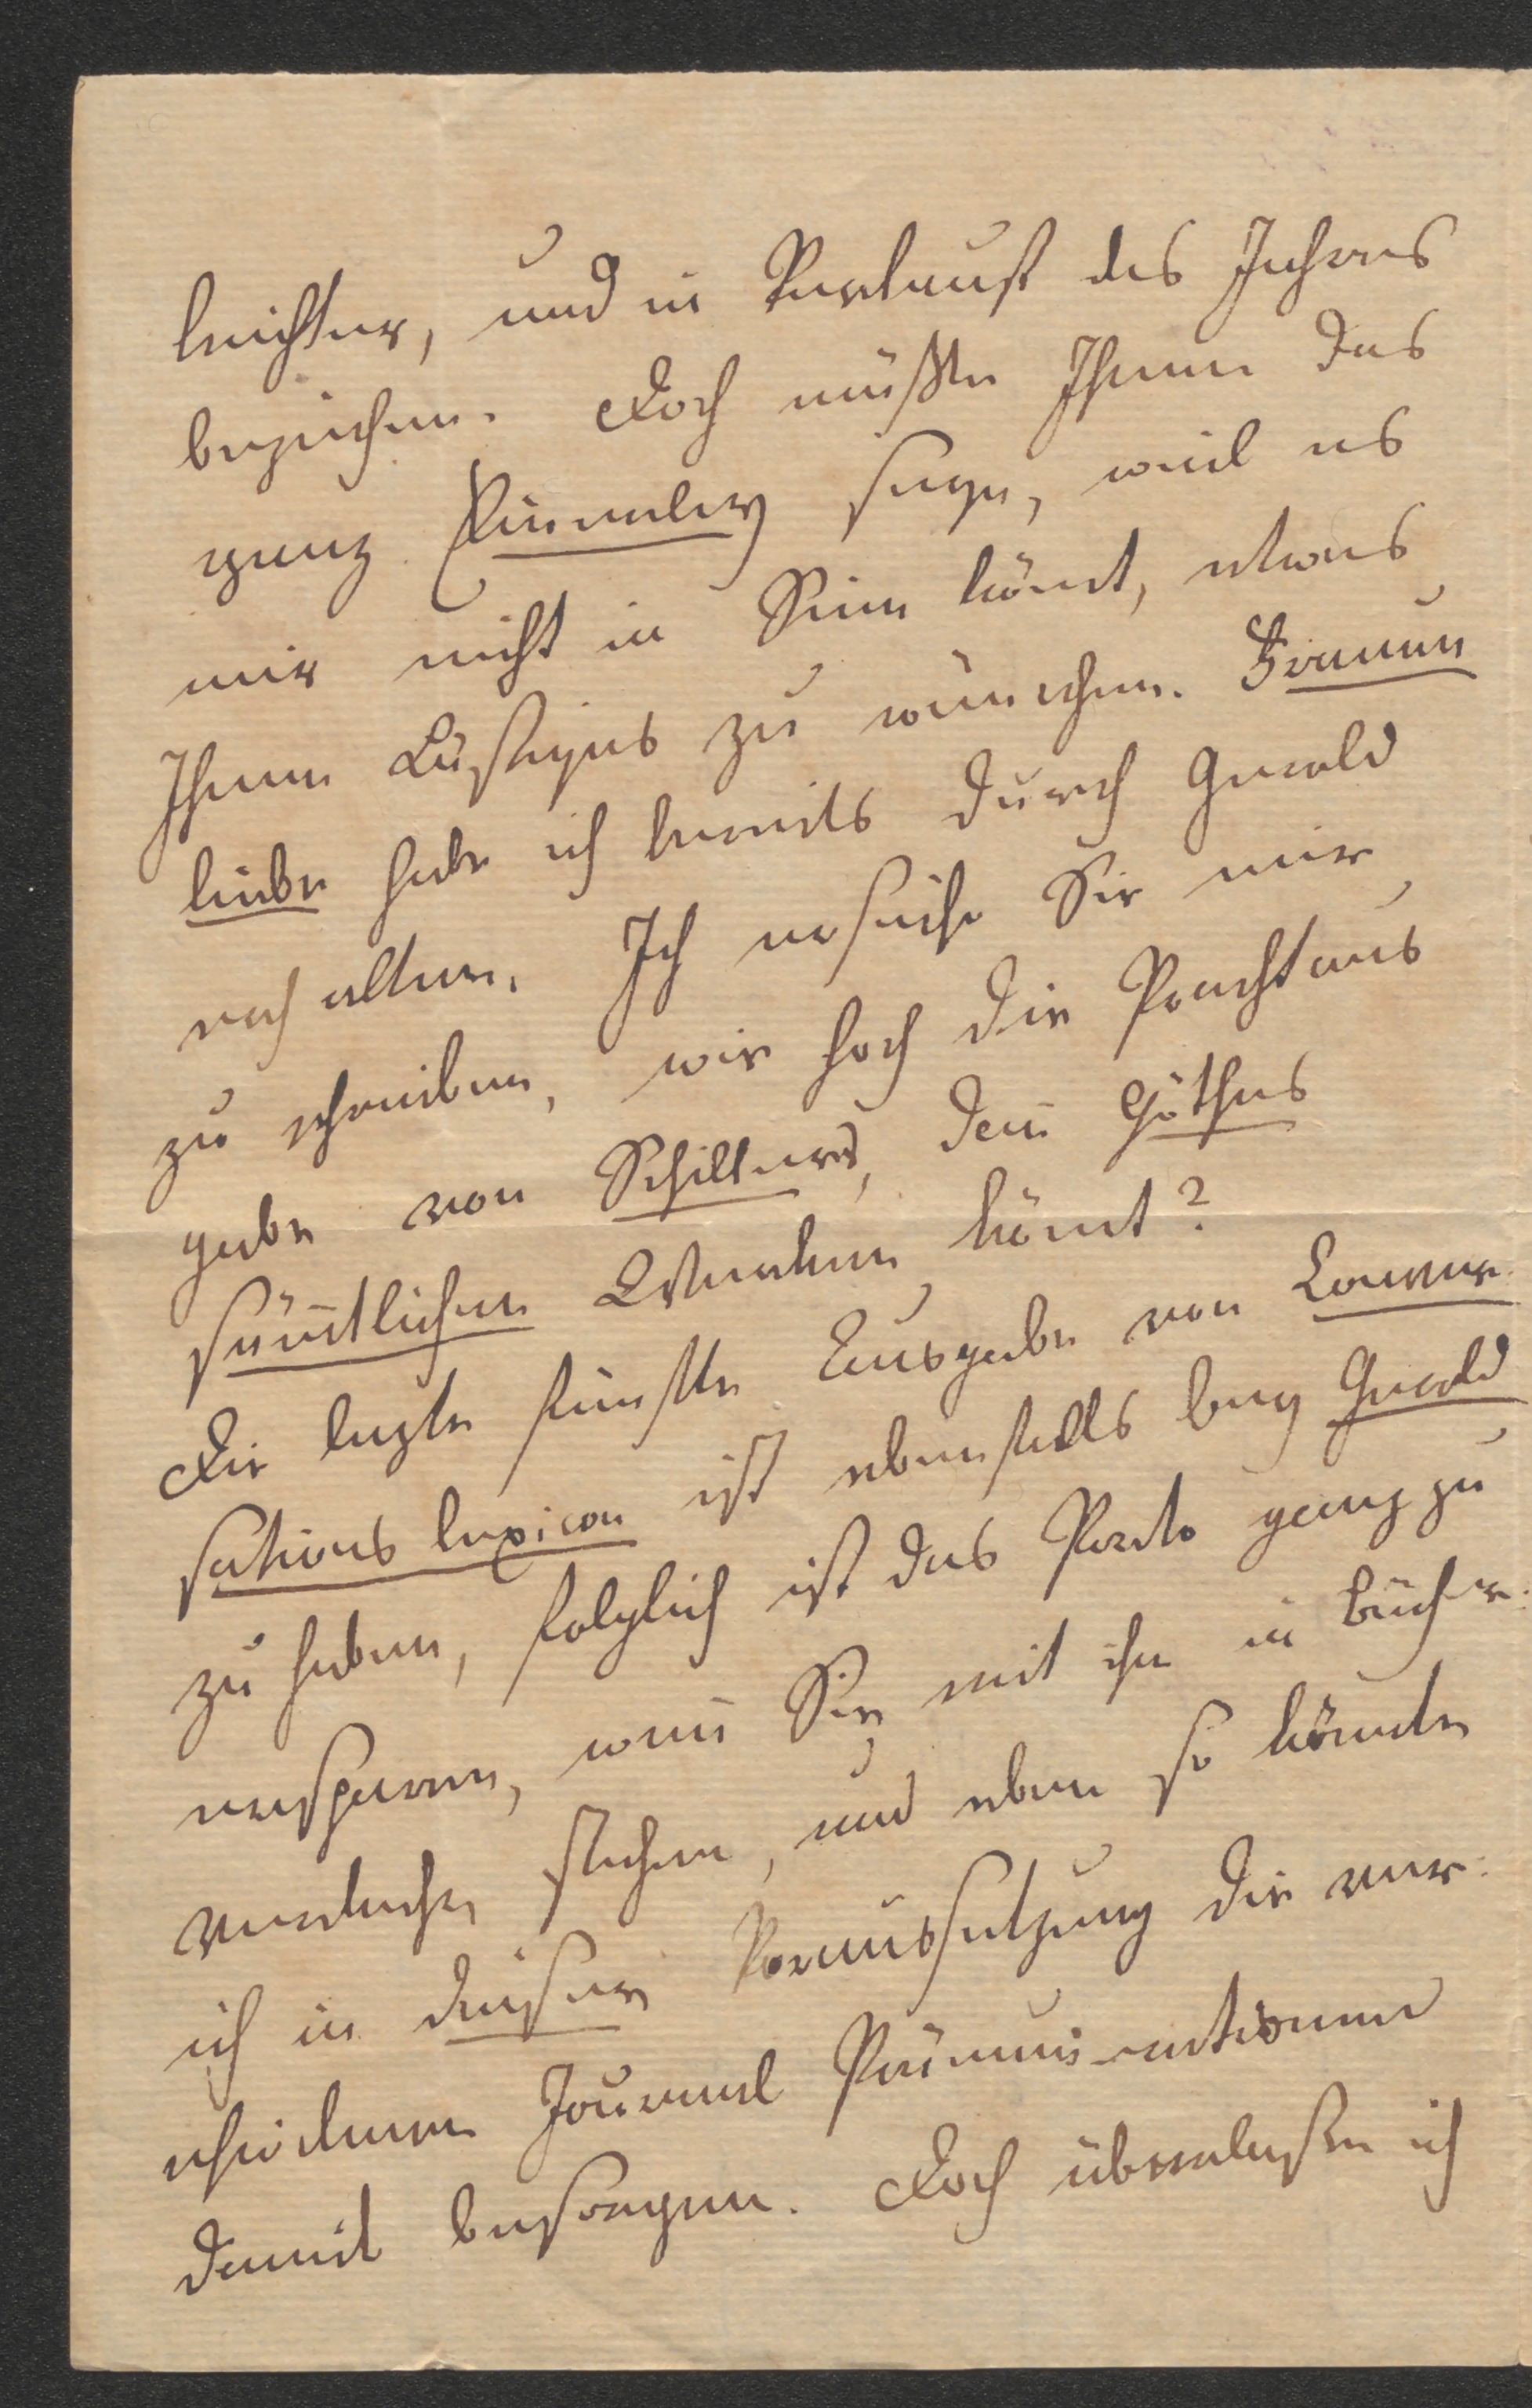 leichter, und in Verlauf des Jahres
beziehen. Doch müßte Ihnen das
ganz einerley seyn, weil es
mir nicht in Sinn kömt, etwas
Ihnen Lästiges zu wünschen. Frauen
liebe habe ich bereits durch Gerold
erhalten. Ich ersuche Sie mir
zu schreiben, wie hoch die Prachtaus
gabe von Schillers, dañ Göthes
säm̄tlichen Werken kömt?
Die lezte fünfte Ausgabe von Conver
sations lexicon ist ebenfalls bey Gerold
zu haben, folglich ist das Porto ganz zu
ersparen, weñ Sie mit ihm in Bücher
verkehr stehen, und eben so könnte
ich in dieser Voraussetzung die ver
schiedenen Journal Pränumerationen
damit besorgen. Doch überlaßen ich